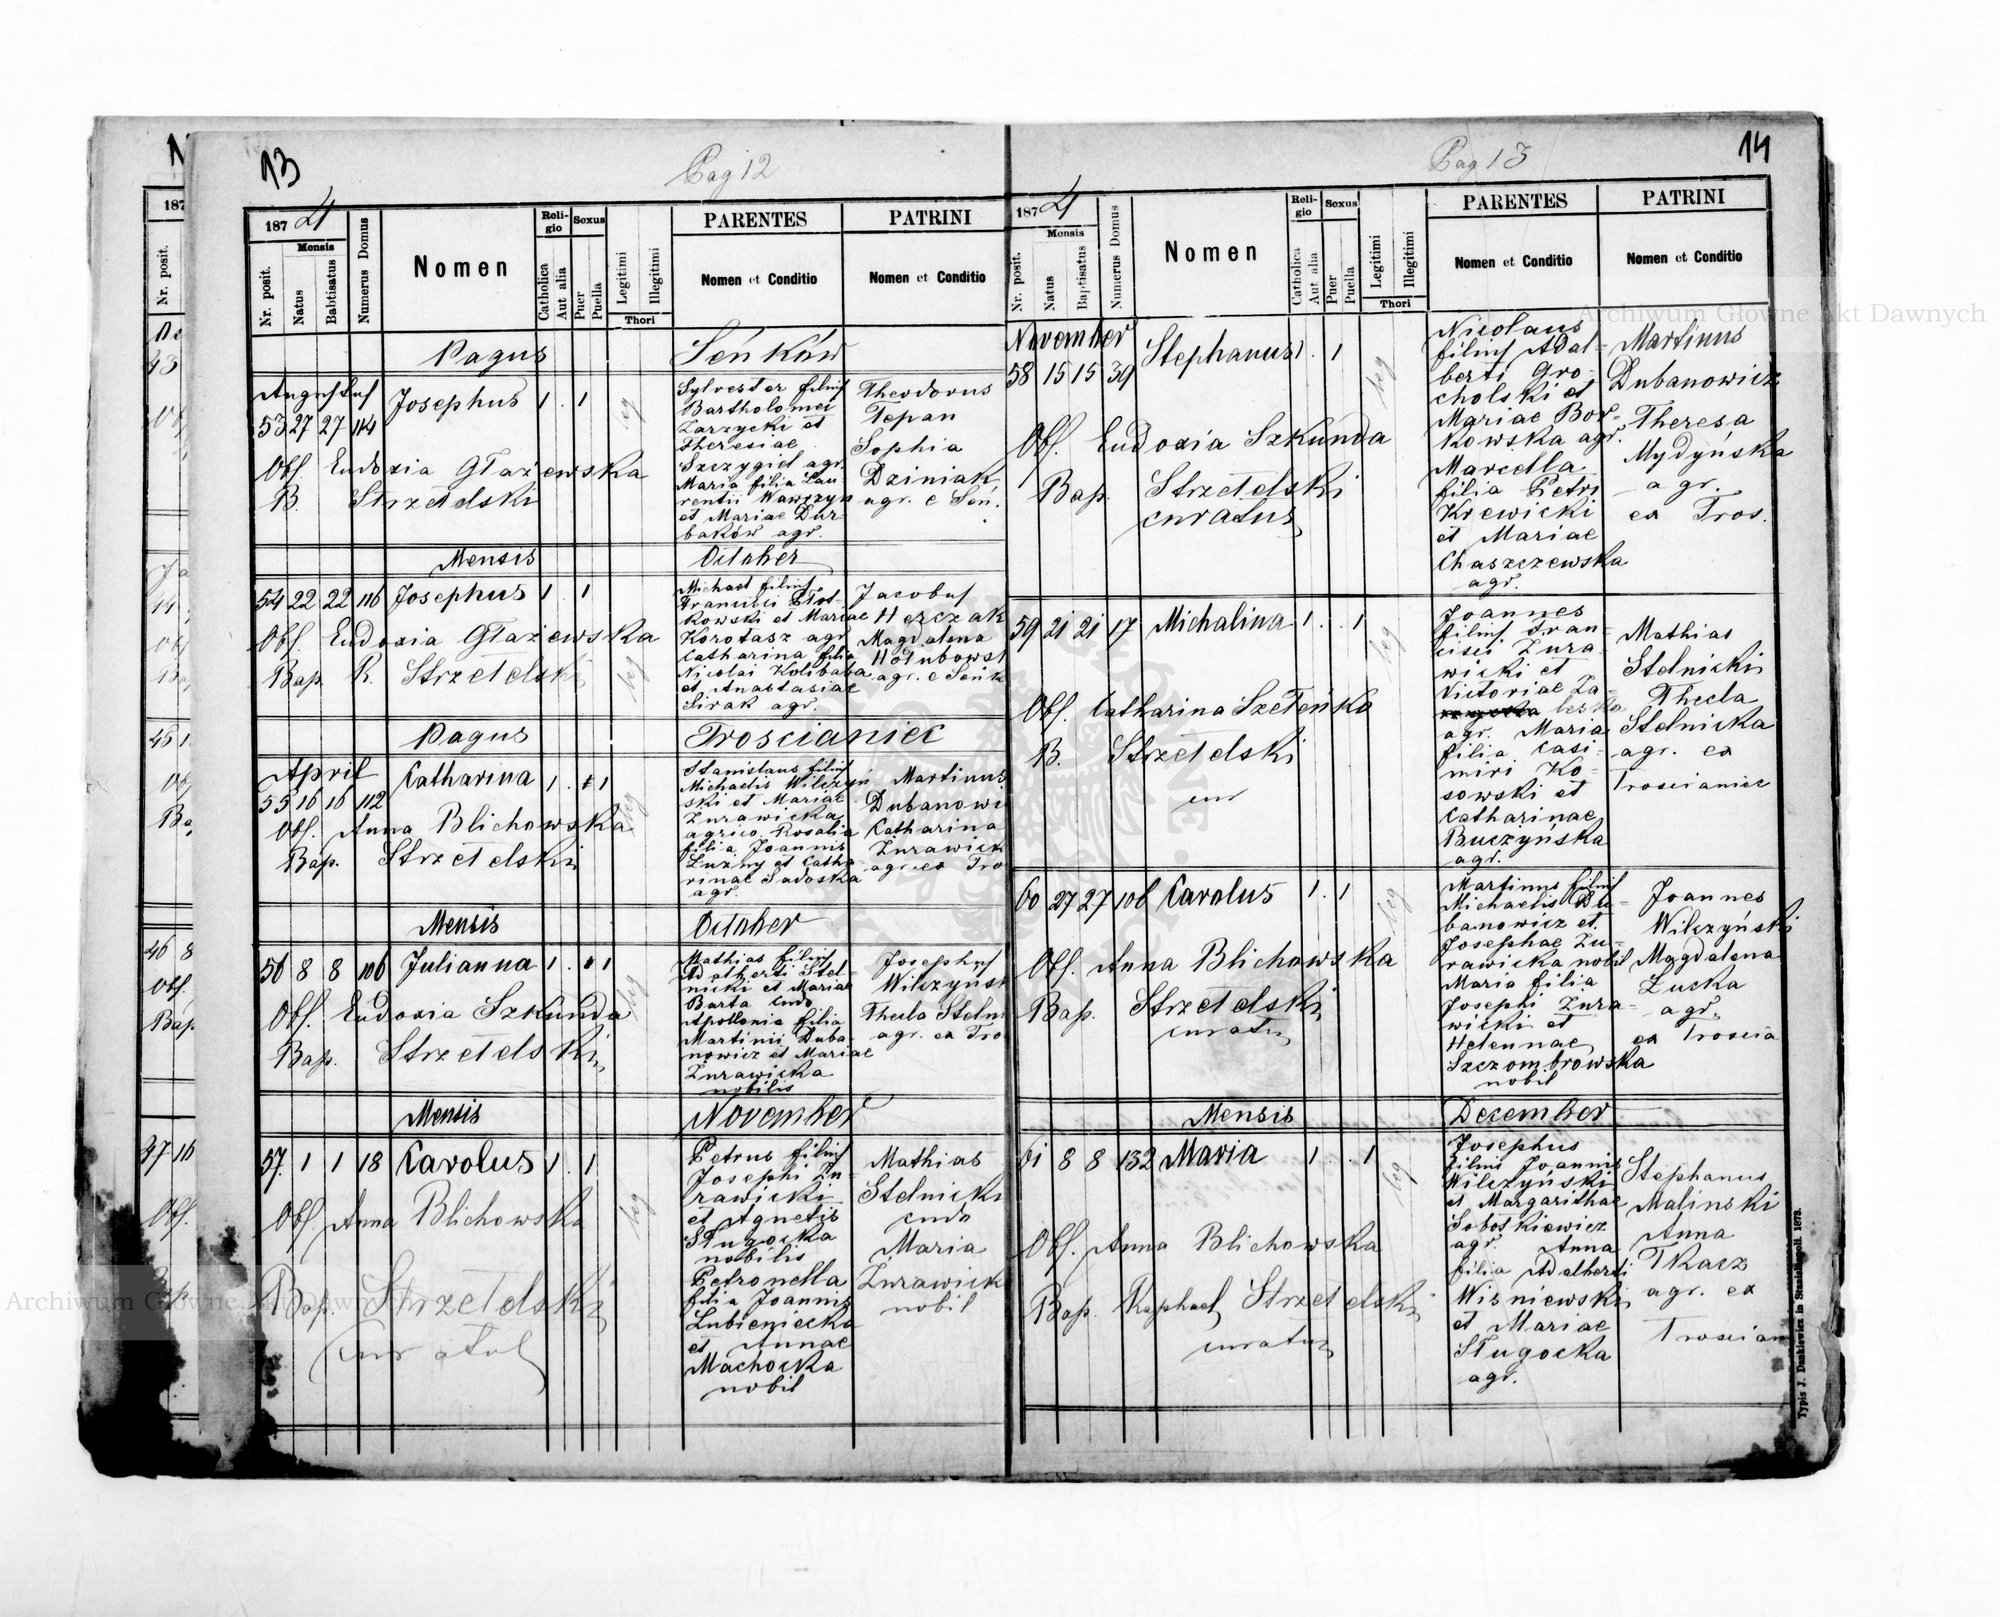 13
Pag 12
187 4
Mensis
Nr. posit.
Natus
Babtisatus
Numerus Domus
Nomen
Religio
Catholica
Aut alia
Sexus
Puer
Puella
Legitimi
Illegitimi
Thori
PARENTES
Nomen et Conditio
PATRINI
Nomen et Conditio
Pagus Seńków
Augustus
53 27 27 114 Josephus 1 . 1
leg
Obs. Eudoxia Głażewska
B. Strzetelski
Sylvester filius
Bartholomei
Zarzycki et
Theresiae
Szczygieł agr.
Maria filia Lau-
rentii Wawczyn
et Mariae Dur-
baków agr.
Theodorus
Tepan
Sophia
Dziniak
agr. e Seń.
Mensis October
54 22 22 116 Josephus 1 . 1
leg
Obs. Eudoxia Głażewska
Bap. R. Strzetelski
Michael filius
Francisci
kowski et Mariae
Korołasz agr.
Catharina filia
Nicolai Kolibaba
et Anastasiae
Sirak agr.
Jacobus
Herczak
Magdalena
Hołubowsk
agr. e Seńk
Pagus Troscianiec
April
55 16 16 112 Catharina 1 . 1
leg
Obs. Anna Blichowska
Bap. Strzetelski
Stanislaus filius
Michaelis Wilczyń
ski et Mariae
Żurawicka
agrico. Rosalia
filia Joannis
Luzny et Catha-
rinae Sadoska
agr.
Martinus
Dubanowi
Catharina
Żurawick
agr. ex Tro
Mensis October
56 8 8 106 Julianna 1 . 1
leg
Obs. Eudoxia Szkunda
Bap. Strzetelski
Mathias filius
Adalberti Stel-
nicki et Mariae
Barta
Apollonia filia
Martini Duba-
nowicz et Mariae
Żurawicka
nobilis
Josephus
Wilczyńsk
Thecla Steln
agr. ex Tro
Mensis November
57. 1 1 18 Carolus 1 . 1
leg
Obs. Anna Blichowska
Bap. Strzetelski
curatus
Petrus filius
Josephi Żu-
rawicki
et Agnetis
Sługocka
nobilis
Petronella
filia Joannis
Lubieniecka
et Annae
Machocka
nobil
Mathias
Stelnicki
Maria
Żurawick
nobil
14
Pag 13
187 4
Mensis
Nr. posit.
Natus
Baptisatus
Numerus Domus
Nomen
Religio
Catholica
Aut alia
Sexus
Puer
Puella
Legitimi
Illegitimi
Thori
PARENTES
Nomen et Conditio
PATRINI
Nomen et Conditio
November
58 15 15 39 Stephanus 1 . 1
leg
Obs. Eudoxia Szkunda
Bap. Strzetelski
curatus
Nicolaus
filius Adal-
berti Gro-
cholski et
Mariae Bor-
kowska agr.
Marcella
filia Petri
Krewicki
et Mariae
Chaszczewska
agr.
Martinus
Dubanowicz
Theresa
Mydyńska
agr.
ex Tros.
59 21 21 17 Michalina 1 . . 1
leg
Obs. Catharina Szeteńka
B. Strzetelski
cur
Joannes
filius Fran-
cisci Żura-
wicki et
Victoriae Za-
leska
agr. Maria
filia Casi-
miri Ko-
sowski et
Catharinae
Buczyńska
agr.
Mathias
Stelnicki
Thecla
Stelnicka
agr. ex
Troscianiec
60 27 27 106 Carolus 1 . 1
leg
Obs. Anna Blichowska
Bap. Strzetelski
curatus
Martinus filius
Michaelis Du-
banowicz et
Josephae Żu-
rawicka nobil
Maria filia
Josephi Żura-
wicki et
Helennae
Szczombrowska
nobil
Joannes
Wilczyński
Magdalena
Zucka
agr.
ex Troscia
Mensis December
61 8 8 132 Maria 1 . . 1
leg
Obs. Anna Blichowska
Bap. Raphael Strzetelski
curatus
Josephus
filius Joannis
Wilczyński
et Margarithae
Soboskiewicz
agr. Anna
filia Adalberti
Wisniewski
et Mariae
Sługocka
agr.
Stephanus
Malinski
Anna
Tkacz
agr. ex
Troscian
Typis J. Dankiewicz in Stanislagoli. 1873.
Archiwum Główne Akt Dawnych
Archiwum Główne Akt Dawnych